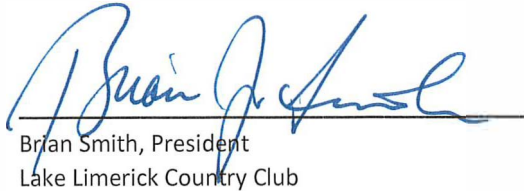 Brian J. Smith
Brian Smith, President
Lake Limerick Country Club